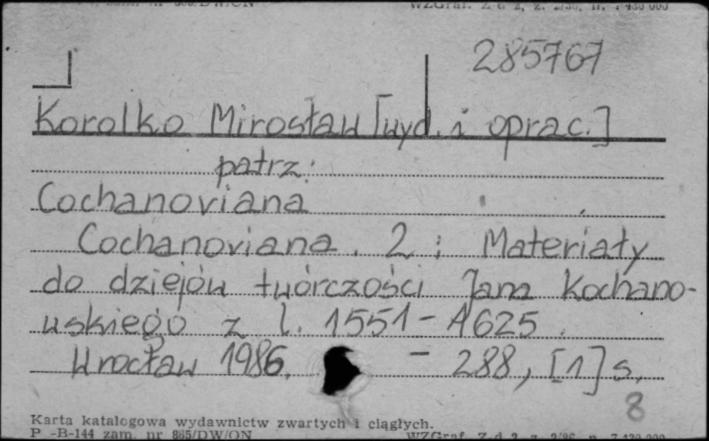 285767
Korolko Mirosław [wyd. i oprac.]
patrz:
Cochanoviana
Cochanoviana. 2 : Materiały
do dziejów twórczości Jana Kochano-
wskiego z l. 1551-1625.
Wrocław 1986. - 288, [1] s.
8
Karta katalogowa wydawnictw zwartych i ciągłych.
P -B-144 zam. nr 865/DW/ON WZGraf. Z d 2, z. 2/86, n.